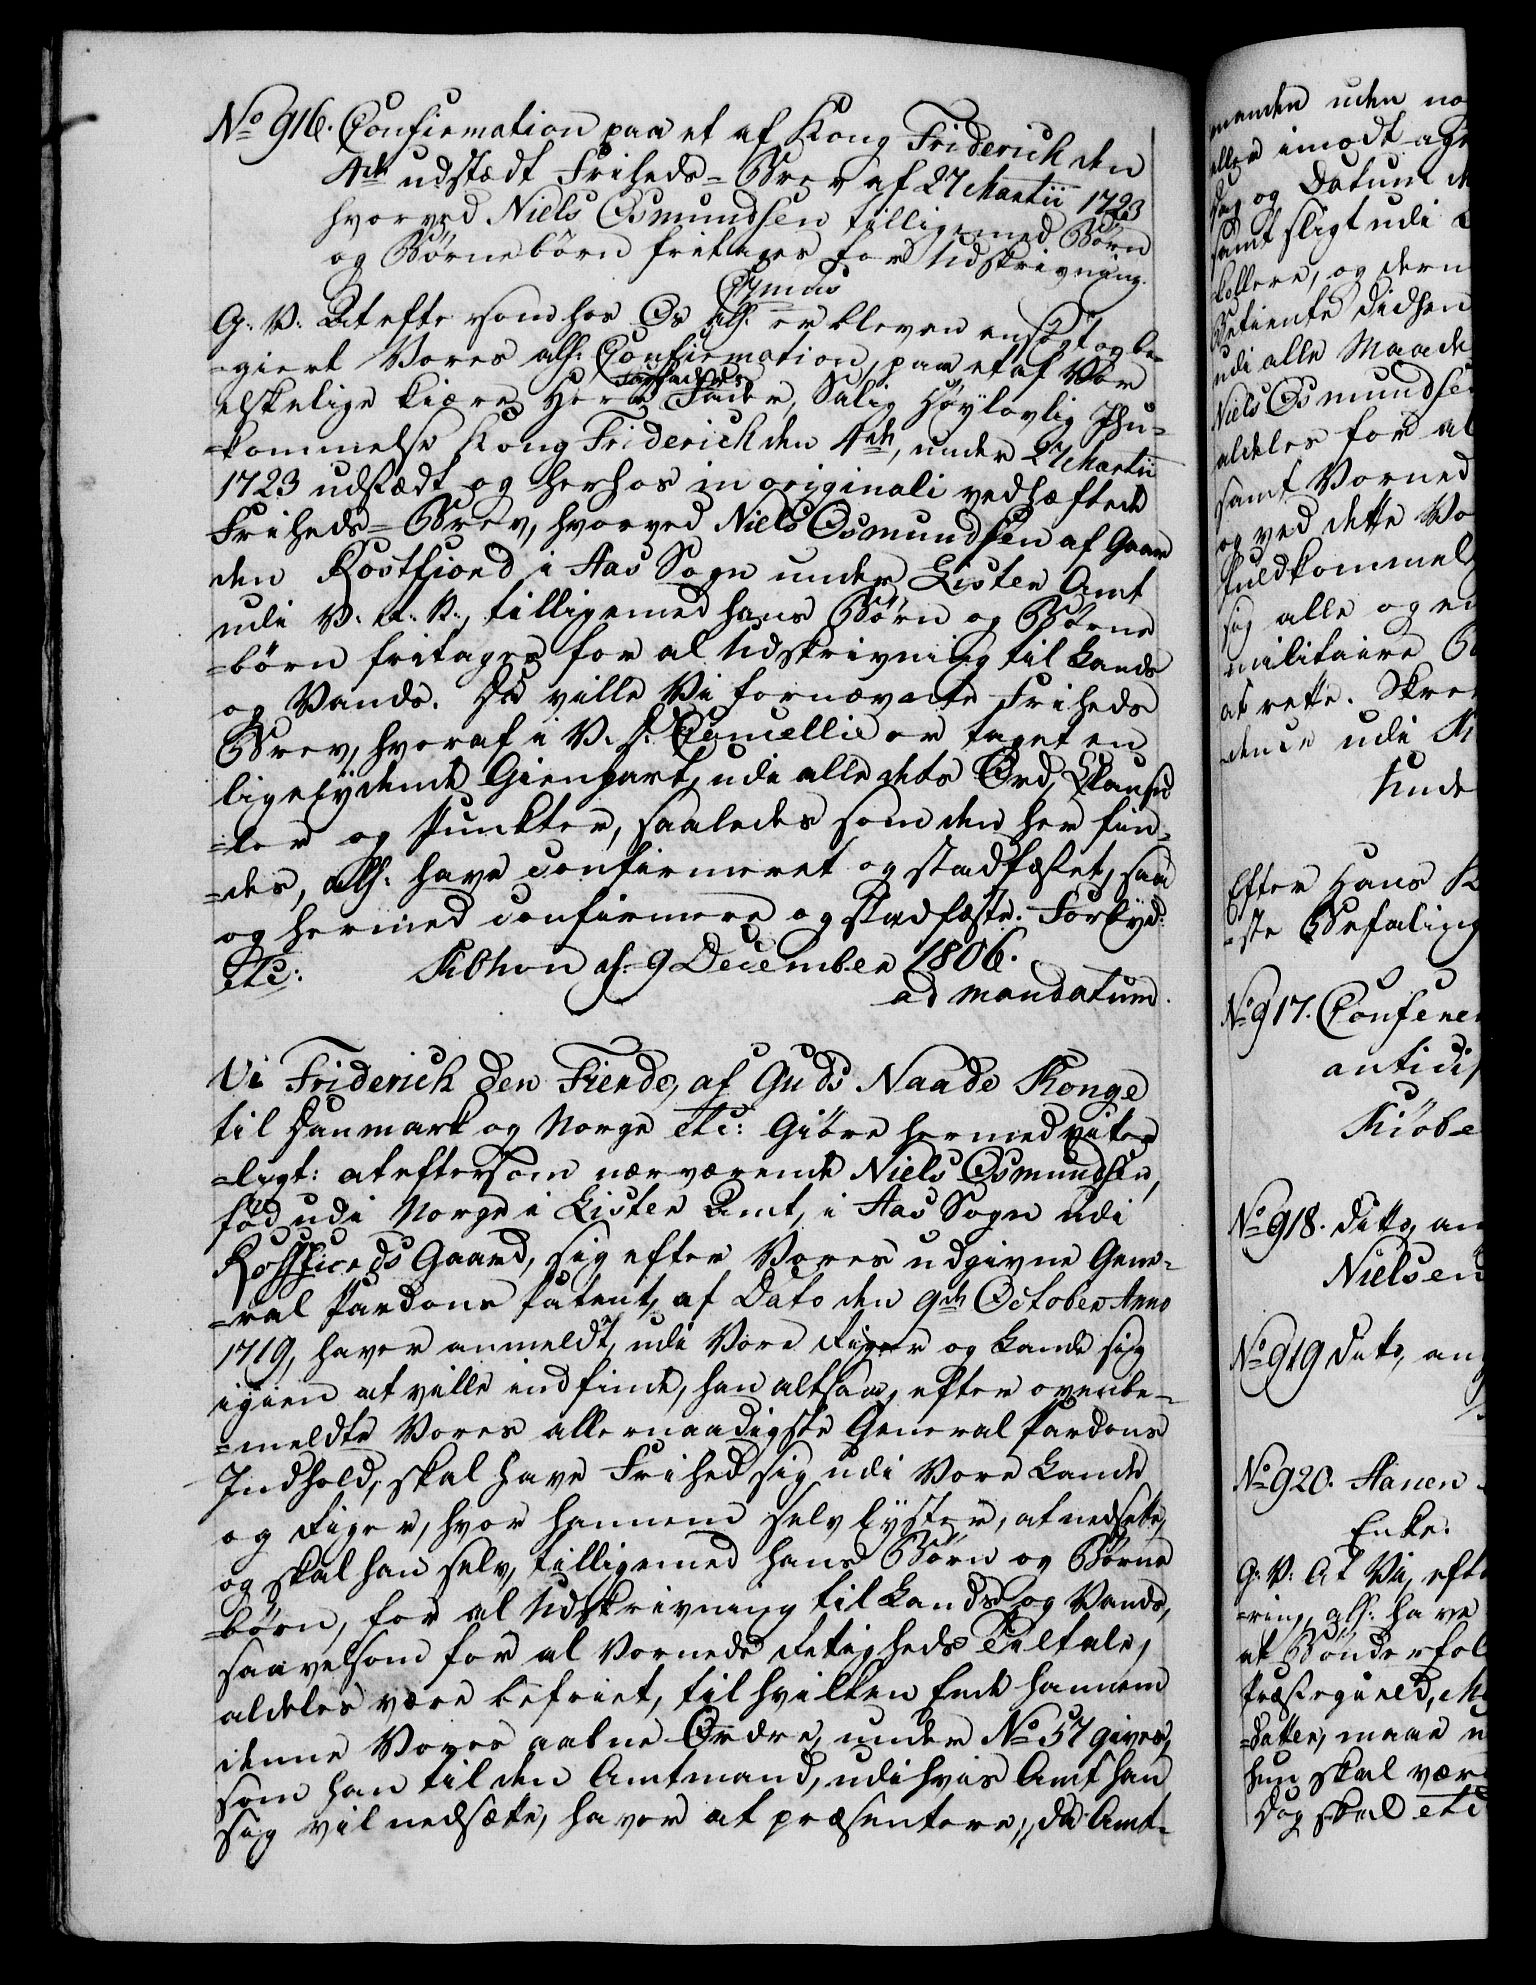 No 916. Confirmation paa et af Kong Friderich den
4de udstædt Friheds-Brev af 27 Martii 1723
hvorved Niels Osmundsen tilligemed Børn
og Børnebörn fritages for Udskrivning.
G. V. At efter som hos Os alh. er bleven ansögt og be-
-giert Vores alh: Confirmation, paa et af Vor
elskelige kiære Herr Farfaders Fader, Salig Höylovlig Ihu-
-kommelse Kong Friderich den 4de, under 27 Martii
1723 udstædt og herhos in originali vedhæftede
Friheds-Brev, hvorved Niels Osmundsen af Gaar
den Rostfiord i Aas Sogn under Lister Amt
udi V. R. N., tilligemed hans Börn og Börne
-börn fritages for al Udskrivning til Lands
og Vands. Da ville Vi fornævnte Friheds
Brev, hvoraf i V. D. Cancellie er taget en
ligelydende Gienpart, udi alle dets Ord, Clausu
-ler og Puncter, saaledes som den her fin-
-des, alh: have confirmeret og stadfæstet, saa
og hermed confirmere og stadfæste. Forbyd:
etc: Kbhvn d. 9 December 1806.
ad mandatum.
Vi Friderich den Fierde, af Guds Naade Konge
til Danmark og Norge etc: Giöre hermed vitter
-ligt: at eftersom nærværende Niels Osmundsen,
föd udi Norge i Lister Amt, i Aas Sogn udi
Gaard, sig efter Vores udgivne Gene-
-ral Pardons Patent, af Dato den 9de October Anno
1719, haver anmeldt, udi Vore Riger og Lande sig
igien at ville indfinde, han altsaa, efter ovenbe-
-meldte Vores allernaadigste General Pardons
Indhold, skal have Frihed sig udi Vore Lande
og Riger, hvor hannem selv lyster, at nedsette,
og skal han selv, tilligemed hans Börn og Börne
-börn, for al Udskrivning til Lands og Vands,
saavelsom for al Vornede Retigheds Tiltale,
aldeles være befriet, til hvilken Ende hannem
denne Vores aabne Ordre, under No 57 gives,
som han til den Amtmand, udi hvis Amt han
sig vil nedsætte, haver at præsentere, da Amt-
manden uden no
eller imodt
og Datum
samt sligt udi
og dern
Betiente didhen
udi alle Maade
Niels Osmundsen
aldeles for al
samt Vorned
og ved dette Vo
fuldkommel
sig alle og en
militaire
at rette. Skre
dence udi
Unde
Efter Hans K
-ste Befaling
No 917.
Kiöbe
No 918. Dito, an
Nielsen
No 919 Dito, ang
No 920.
Enke.
G. V. At Vi, eft
-ring, alh: have
at Bönderfol
Præstegield,
-datter, maae
hun skal vær
Dog skal etc